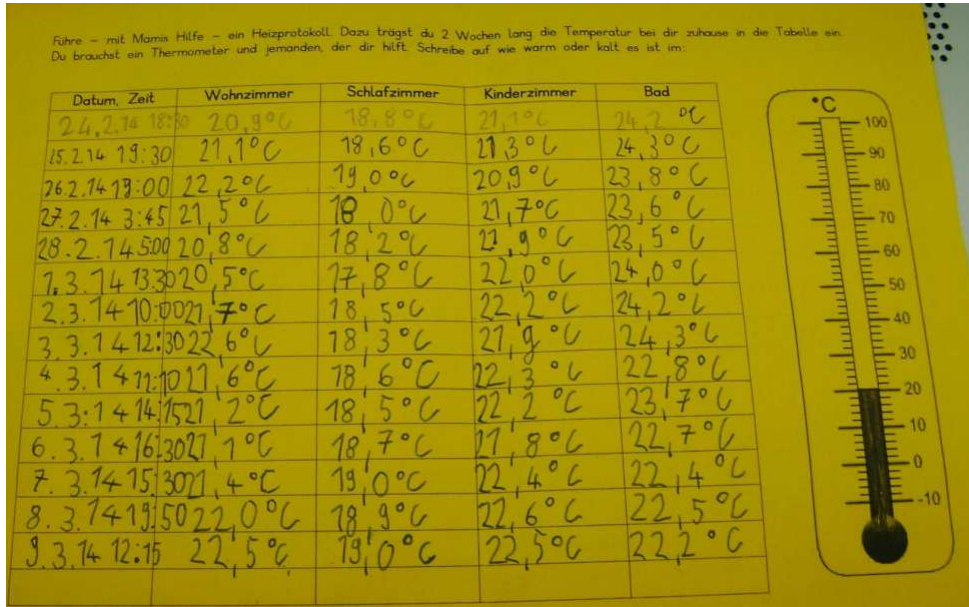 Führe – mit Mamis Hilfe – ein Heizprotokoll. Dazu trägst du 2 Wochen lang die Temperatur bei dir zuhause in die Tabelle ein.
Du brauchst ein Thermometer und jemanden, der dir hilft. Schreibe auf wie warm oder kalt es ist im:
Datum, Zeit Wohnzimmer Schlafzimmer Kinderzimmer Bad
24.2.14 18:30 20,9°C 18,8°C 21,1°C 24,2 °C
25.2.14 19:30 21,1°C 18,6°C 21,3°C 24,3°C
26.2.14 19:00 22,2°C 19,0°C 20,9°C 23,8°C
27.2.14 3:45 21,5°C 18,0°C 21,7°C 23,6°C
28.2.14 5:00 20,8°C 18,2°C 21,9°C 23,5°C
1.3.14 13:30 20,5°C 17,8°C 22,0°C 24,0°C
2.3.14 10:00 21,7°C 18,5°C 22,2°C 24,2°C
3.3.14 12:30 22,6°C 18,3°C 21,9°C 24,3°C
4.3.14 11:10 21,6°C 18,6°C 22,3°C 22,8°C
5.3.14 14:15 21,2°C 18,5°C 22,2°C 23,7°C
6.3.14 16:30 21,1°C 18,7°C 21,8°C 22,7°C
7.3.14 15:30 21,4°C 19,0°C 22,4°C 22,4°C
8.3.14 19:50 22,0°C 18,9°C 22,6°C 22,5°C
9.3.14 12:15 22,5°C 19,0°C 22,5°C 22,2°C
°C
100
90
80
70
60
50
40
30
20
10
0
-10